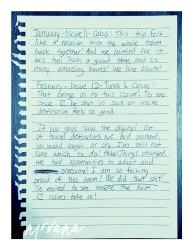 January - Issue 11 - Cabo: This trip felt
like a reunion with the whole team
back together. And we partied like it
was too! Such a good time, and so
many amazing boats! We love boats!
February - Issue 12 - Turks & Caicos
That brings us to this issue! To see
Issue 12 be shot in such an insane
destination feels so good.
If you guys saw the original list
of travel destinations we had planned,
you would laugh, or cry. I'm still not
sure which to do. Things changed,
we had obstacles to adapt and
overcome! I am so fucking
proud of this team! We did that shit!
So excited to see where the next
12 issues take us!